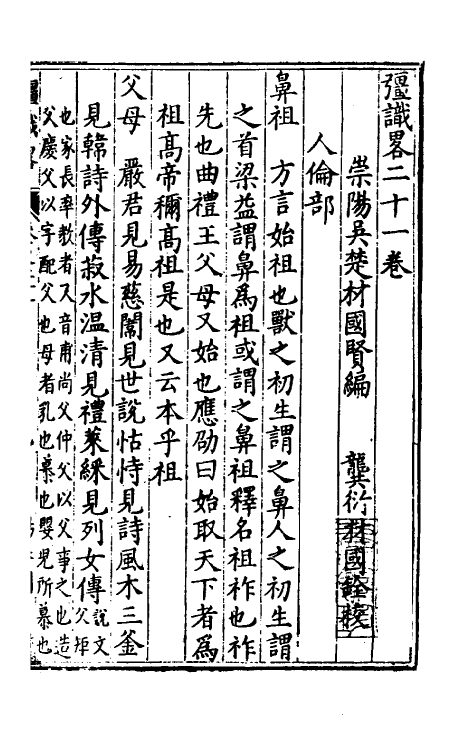 彊識畧二十一卷
崇陽吳楚材國賢編 龔衍材國銓校
人倫部
鼻祖 方言始祖也獸之初生謂之鼻人之初生謂
之首梁益謂鼻爲祖或謂之鼻祖釋名祖祚也祚
先也曲禮王父母又始也應劭曰始取天下者爲
祖高帝禰高祖是也又云本乎祖
父母 嚴君見易慈闈見世說怙恃見詩風木三釜
見韓詩外傳菽水温清見禮萊綵見列女傳說文父矩
也家長率敎者又音甫尚父仲父以父事之也造
父慶父以字配父也母者乳也慕也嬰兒所慕也